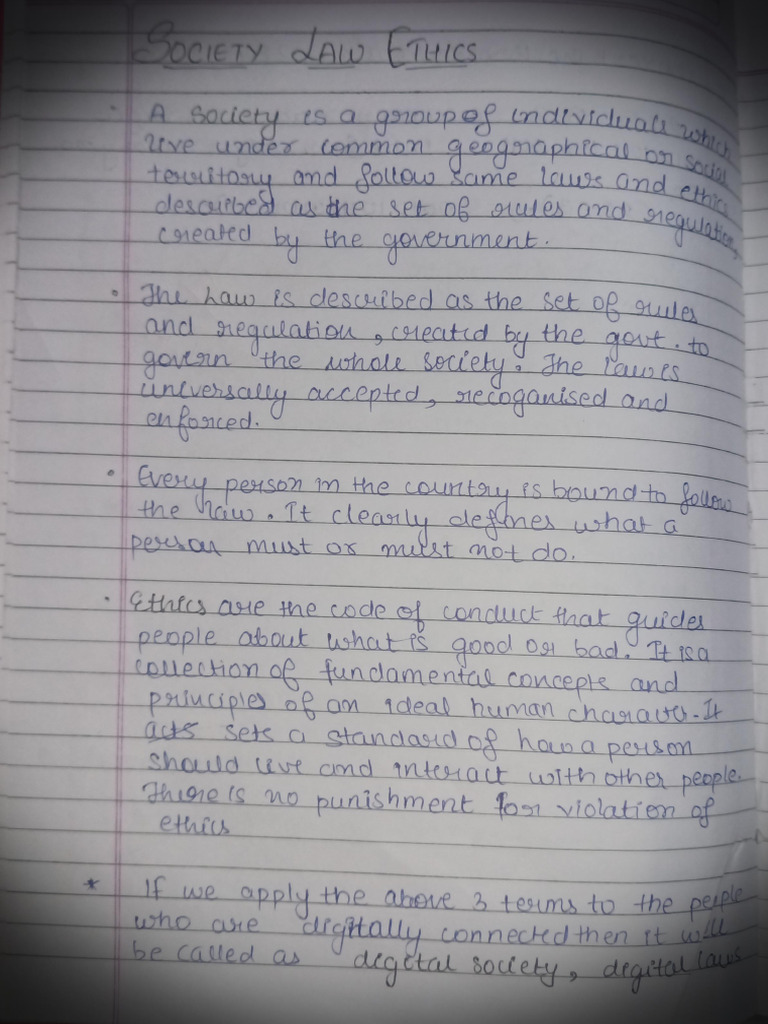 SOCIETY LAW ETHICS
• A society is a group of individuals which
live under common geographical or social
territory and follow same laws and ethics
described as the set of rules and regulations
created by the government.
• The Law is described as the set of rules
and regulation, created by the govt. to
govern the whole society. The law is
universally accepted, recoganised and
enforced.
• Every person in the country is bound to follow
the law. It clearly defines what a
person must or must not do.
• Ethics are the code of conduct that guides
people about what is good or bad. It is a
collection of fundamental concepts and
principles of an ideal human character. It
acts sets a standard of how a person
should live and interact with other people.
There is no punishment for violation of
ethics
* If we apply the above 3 terms to the people
who are digitally connected then it will
be called as digital society, digital laws